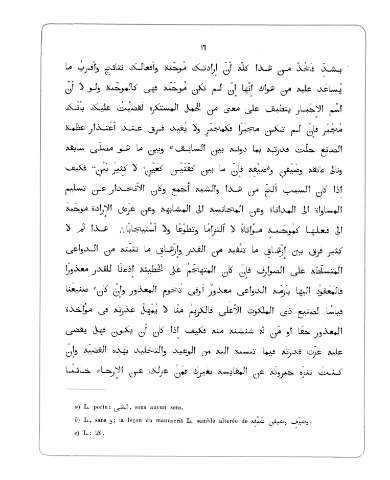 ١٦
يشدّ فاتّخذ من هذا كلّه أنّ ارادتك مُوجَبة وأفعالك نتائج وأقرب ما
يُساعد عليه من هواك إنّها إن لم تكن موجَبة فهى كالموجَبة ولو لا أنّ
اسْم الاجبار ينطبق على معنى من الحمل المستكرَه لقضيتُ عليك بأنّك
مُجْبَر فإن لم تكن مجبَرًا فكمجبَر ولا يُفيد فرق عند اعتذار عظمة
الصانع جلّت قدرته بما دونه بين السابق وبين ما هو مصلّى سابقه
وتالى عائقه فإنّ ما بين فكيف
إذا كان السبب أتمّ من هذا والشبه أجمع وكان الانحدار عن تسليم
المساواة الى المداناة وعن المجانسة الى المشابهة وعن عرى الإرادة موجَبة
الى فعلها كموجَبه مؤاتاة لا التزامًا وتطوّعًا ولا استيجابًا هذا ثم لا
كثير فرق بين إرهاق ما تنفّذه من القدر وإرهاق ما تنفّذه من الدواعى
المتسلّطة على الصوارف فإن كان المتهاجّم على الخطيئة إذعانًا للقدر معذورًا
فالمعقود اليها برصد الدواعى معذور أوفى تخوم المعذور وإن كان صنيعنا
قياسًا لصنيع ذى الملكوت الأعلى فالكريم منّا لا يُهمل عذره فى مؤاخذة
المعذور حقًّا او من له شنشنة منه فكيف إذا كان أن يكون فهل يقضى
عليه عزّت قدرته فيما تسنده اليه من الوعيد والتخليد بهذه القضيّة وإن
كنتَ تنزّه جبروته عن المقايسة بغيره فمن عزلك عن الإرجاء خاتمًا
a) L. porte: الشى, sans aucun sens.
b) L., sans و; la leçon du manuscrit L. semble altérée de
c) L.: